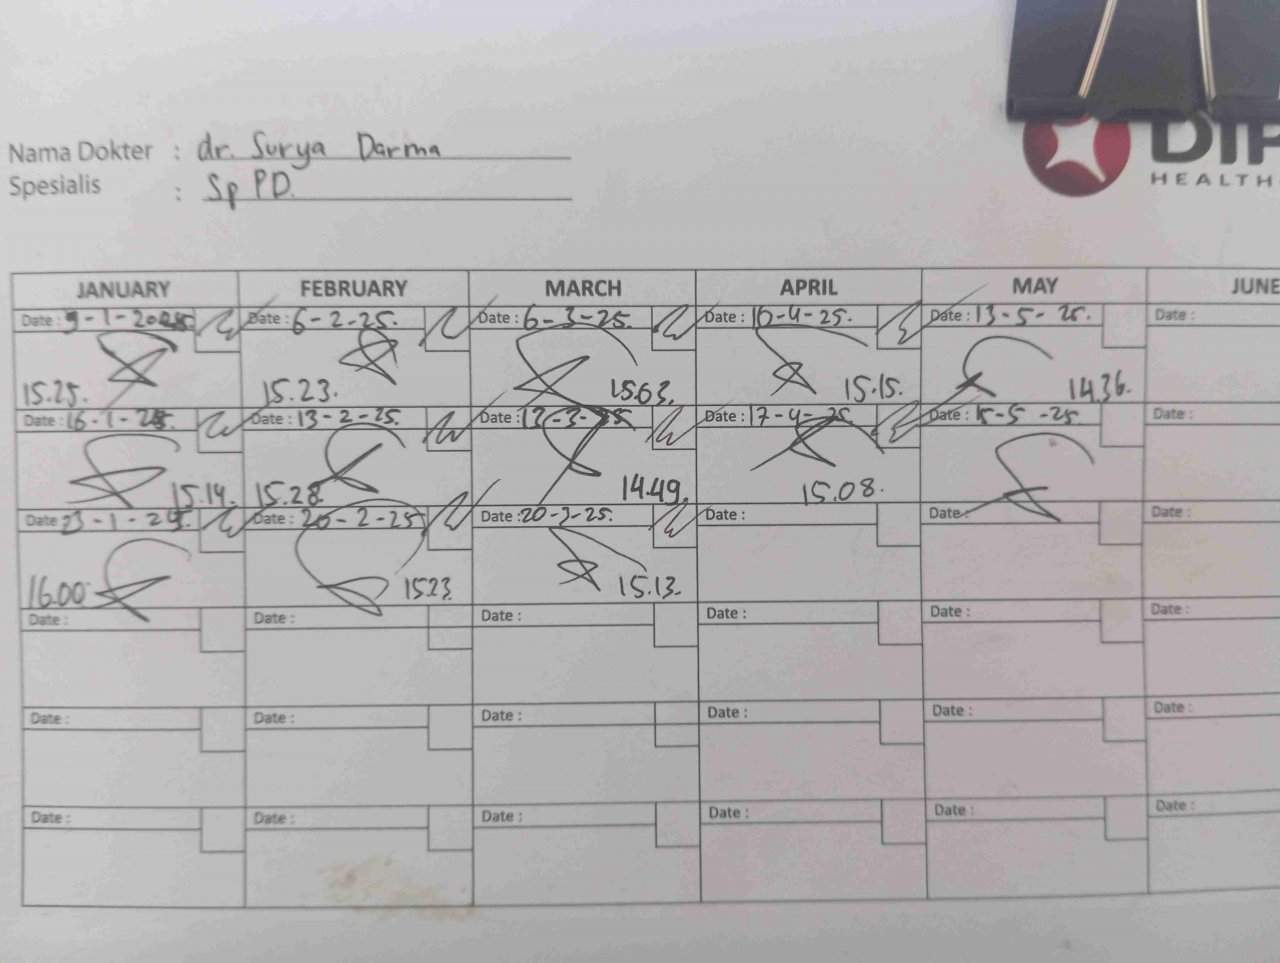 Nama Dokter : dr. Surya Darma
Spesialis : Sp PD.
HEALTH
JANUARY FEBRUARY MARCH APRIL MAY JUNE
Date : 9-1-2025 Date : 6-2-25. Date : 6-3-25. Date : 10-4-25. Date : 13-5-25. Date :
15.25. 15.23. 15.03. 15.15. 14.36.
Date : 16-1-25. Date : 13-2-25. Date : 13-3-25 Date : 17-4-25 Date : 15-5-25. Date :
15.14. 15.28. 14.49. 15.08.
Date : 23-1-25. Date : 20-2-25 Date : 20-3-25. Date : Date : Date :
16.00 15.23 15.13.
Date : Date : Date : Date : Date : Date :
Date : Date : Date : Date : Date : Date :
Date : Date : Date : Date : Date : Date :